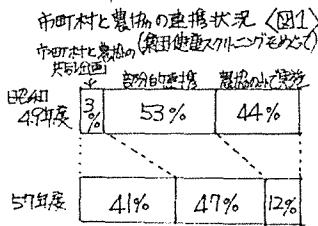 市町村と農協の連携状況 〈図1〉
(農田健康スクリーニングをめぐって)
市町村と農協の
共同企画
部分的連携
農協のみで実施
昭和
49年度
3%
53%
44%
57年度
41%
47%
12%